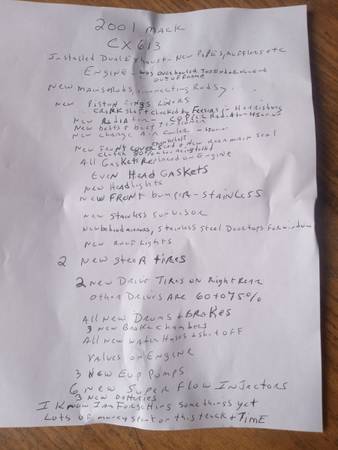 2001 mack
CX 613
Installed Dual Exhaust - New Pipes, mufflers etc
Engine - was overhauled
out of frame
New main & Rods, connecting Rods
New Piston rings Liners
Crank shaft checked by in Harrisburg
New Radiator - Copper Radiator
New belts &
New charge Air cooler
New Front cover and New rear main seal
All Gaskets Replaced on Engine
Even Head Gaskets
New Headlights
New FRONT bumper - STAINLESS
New stainless sunvisor
New mirrors, stainless steel Door tops for window
New Roof Lights
2 New steer tires
2 new Drive Tires on Right Rear
Other Drives are 60 to 75%
All New Drums & BRAKES
3 New Brake chambers
All New water Hoses & shut OFF
Valves on Engine
3 New Eup Pumps
6 New Super Flow Injectors
3 New batteries
I know I am Forgetting some things yet
Lots of money spent on this truck & TIME